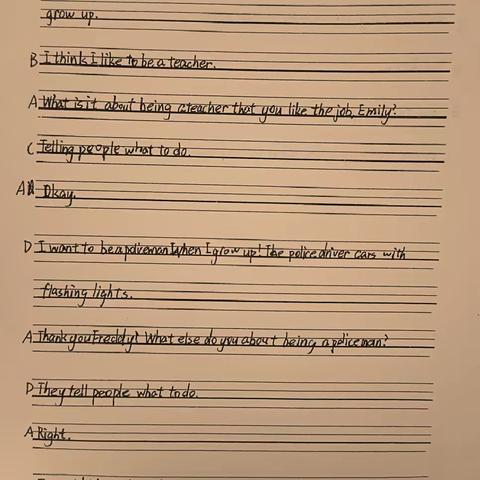 grow up.
B I think I like to be a teacher.
A What is it about being a teacher that you like the job, Emily?
C Telling people what to do.
A Okay.
D I want to be a policeman When I grow up! The police driver cars with
flashing lights.
A Thank you Freddy! What else do you about being a policeman?
D They tell people what to do.
A Right.